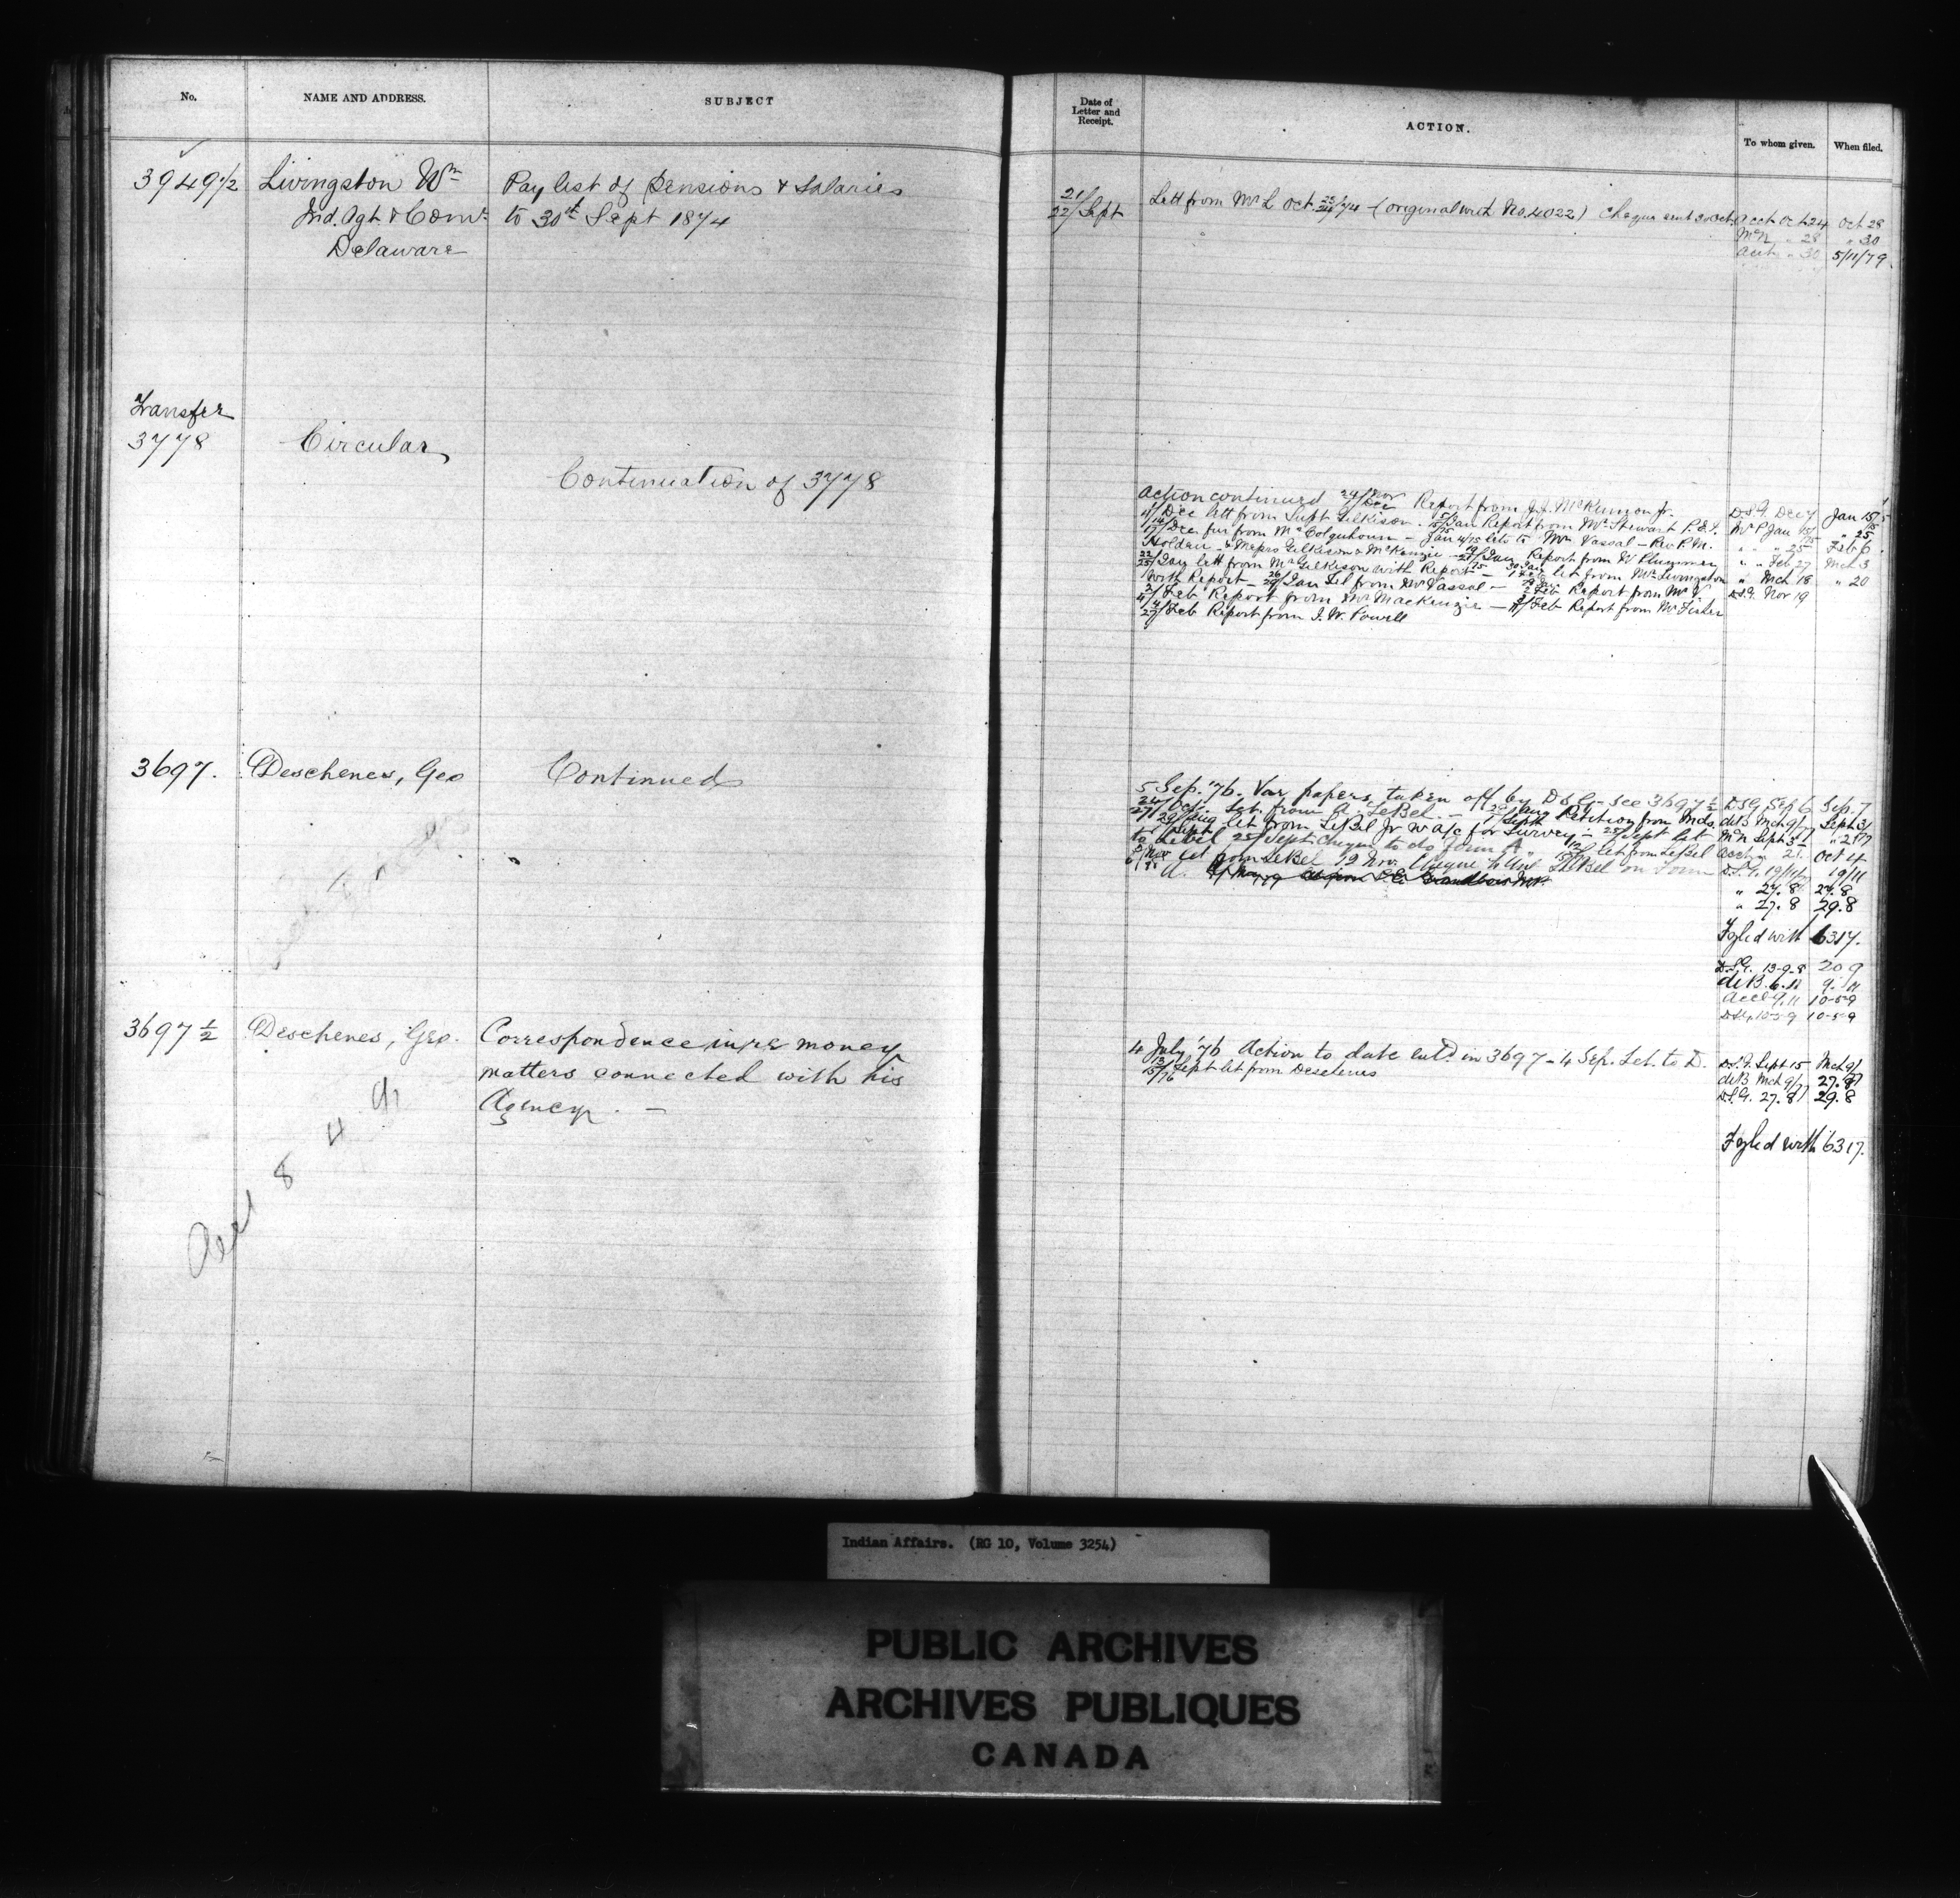 No. NAME AND ADDRESS. SUBJECT
Date of Letter and Receipt. ACTION. To whom given. When filed.
3949½ Livingston Wm Pay list of Pensions & Salaries
Ind. Agt & Comr to 30th Sept 1874
Delaware
21/22/Sept Lett from Mr L Oct. 22/24/74 - (original with No. 4022) Cheque sent 30 Oct. Acct Oct 24 Oct 28
McN " 28 " 30
Acct " 30 5/11/79
Transfer
3778 Circular
Continuation of 3778
Action continued 24/Nov /Dec Report from J.J. McKinnon Jr. D.S.G. Dec 7 Jan 15
/Dec lett from Supt Gilkison. 5/15/Jan Report from Mr Stewart P.E.I. Mr P Jan 15/75 " 25
14/17/Dec fur from Mr Colquhoun - Jan 4/75 lets to Wm Vassal - Rev P.M. " " 25 Feb 6
Holden - & Messrs Gilkison & McKenzie - /Jan Report from W Plummer " " Feb 27 Mch 3
22/25/Jan lett from Mr Gilkison with Report - 30 Jan let from Mr Livingston " Mch 18 " 20
With Report - 26/29/Jan Lel from Mr Vassal - /Feb Report from Mr V. D.S.G. Nov 19
2/4/Feb Report from Mr MacKenzie - /Feb Report from Mr Fisher
4/27/Feb Report from I. W. Powell
3697. Deschenes, Geo Continued
5 Sep. '76. Var papers taken off by D.S.G. - see 3697½ DSG Sep 6 Sep. 7
24/27/Oct. Let. from A. LeBel. - /Aug Petition from Inds. deB Mch 9/77 Sept 3/77
29/Aug let from LeBel Jr w a/c for Survey - 25/Sept let McN Sept 3 " 21
to LeBel 25/Sept Cheque to do form A. let from LeBel Acct " 21. Oct 4
/Nov let from LeBel 19 Nov. Cheque LeBel on Form D.S.G. 19/11/77 19/11
A.
" 27.8 29.8
" 27.8 29.8
Fyled with 6317.
D.S.G. 13-9-8 20 9
deB. 6.11 9.11
Acct 9.11 10-5-9
D.S.G. 10-5-9 10-5-9
3697½ Deschenes, Geo. Correspondence in re money
matters connected with his
Agency. -
4 July '76 Action to date entd in 3697 - 4 Sep. Let. to D. D.S.G. Sept 15 Mch 9/
13/15/Sept/76 let from Deschenes deB Mch 9/77 27.8
D.S.G. 27.8 29.8
Fyled with 6317.
Indian Affairs. (RG 10, Volume 3254)
PUBLIC ARCHIVES
ARCHIVES PUBLIQUES
CANADA